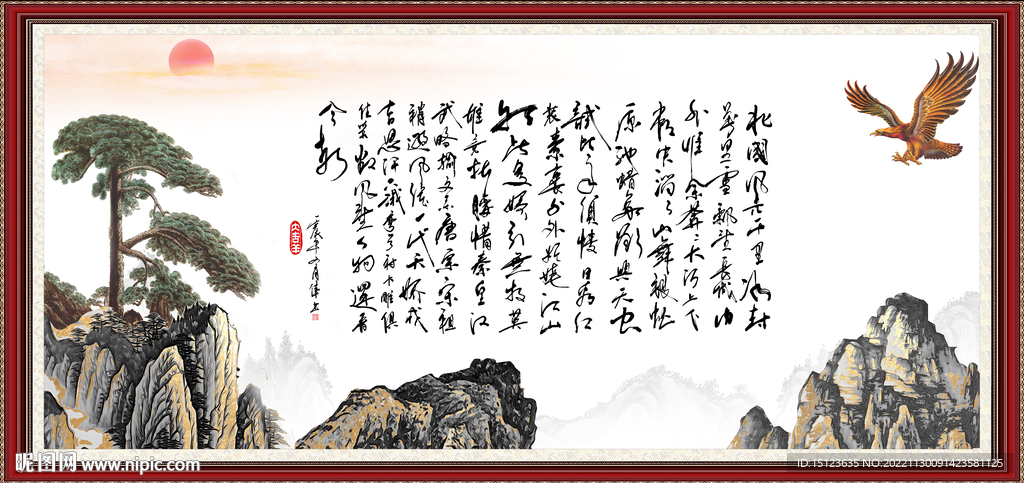 北國風光千里冰封
萬里雪飄望長城内
外惟余莽莽大河上下
頓失滔滔山舞銀蛇
原馳蠟象欲與天公
試比高須晴日看紅
裝素裹分外妖嬈江山
如此多嬌引無數英
雄競折腰惜秦皇漢
武略輸文采唐宗宋祖
稍遜風騷一代天驕成
吉思汗只識彎弓射大雕俱
往矣數風流人物還看
今朝
昵图网 www.nipic.com
ID:15123635 NO.20221130091423581125